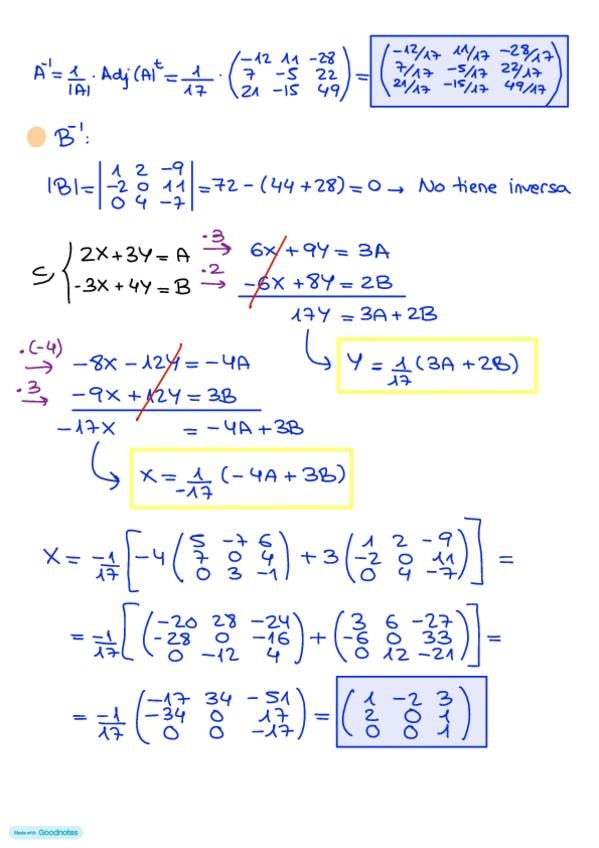 A⁻¹ = 1/|A| · Adj(A)ᵗ = 1/17 · (-12 11 -28 / 7 -5 22 / 21 -15 49) = (-12/17 11/17 -28/17 / 7/17 -5/17 22/17 / 21/17 -15/17 49/17)
B⁻¹:
|B| = |1 2 -9 / -2 0 11 / 0 4 -7| = 72 - (44 + 28) = 0 → No tiene inversa
S { 2X + 3Y = A ·3→ 6X + 9Y = 3A
-3X + 4Y = B ·2→ -6X + 8Y = 2B
17Y = 3A + 2B
Y = 1/17 (3A + 2B)
·(-4)→ -8X - 12Y = -4A
·3→ -9X + 12Y = 3B
-17X = -4A + 3B
X = 1/-17 (-4A + 3B)
X = -1/17 [-4 (5 -7 6 / 7 0 4 / 0 3 -1) + 3 (1 2 -9 / -2 0 11 / 0 4 -7)] =
= -1/17 [(-20 28 -24 / -28 0 -16 / 0 -12 4) + (3 6 -27 / -6 0 33 / 0 12 -21)] =
= -1/17 (-17 34 -51 / -34 0 17 / 0 0 -17) = (1 -2 3 / 2 0 1 / 0 0 1)
Made with Goodnotes